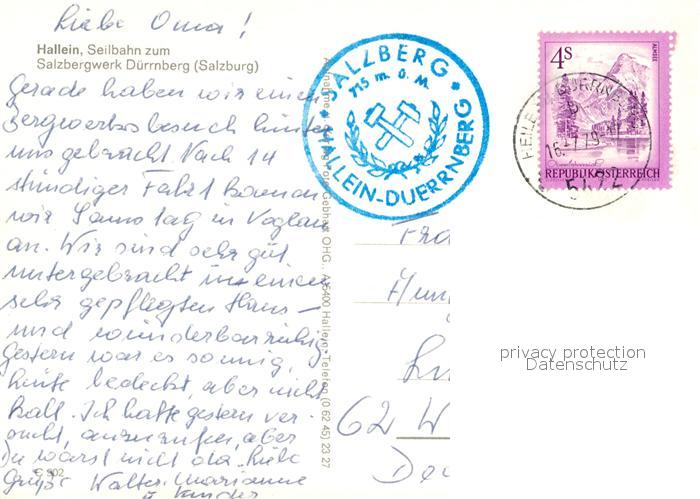 Liebe Oma!
Hallein, Seilbahn zum
Salzbergwerk Dürrnberg (Salzburg)
Gerade haben wir einen
Bergwerksbesuch hinter
uns gebracht. Nach 14
stündiger Fahrt kamen
wir Samstag in Voglau
an. Wir sind sehr gut
untergebracht in einem
sehr gepflegten Haus –
und wunderbar ruhig.
Gestern war es sonnig,
heute bedeckt, aber nicht
kalt. Ich hatte gestern ver-
sucht, anzurufen, aber
Du warst nicht da. Liebe
Grüße Walter, Marianne
u. Kinder
C 902
Gebhart OHG., A-5400 Hallein, Telefon (0 62 45) 23 27
SALZBERG
715 m. ü. M.
HALLEIN-DUERRNBERG
4S
ALMSEE
REPUBLIK ÖSTERREICH
5422
Fra
62 W
privacy protection
Datenschutz